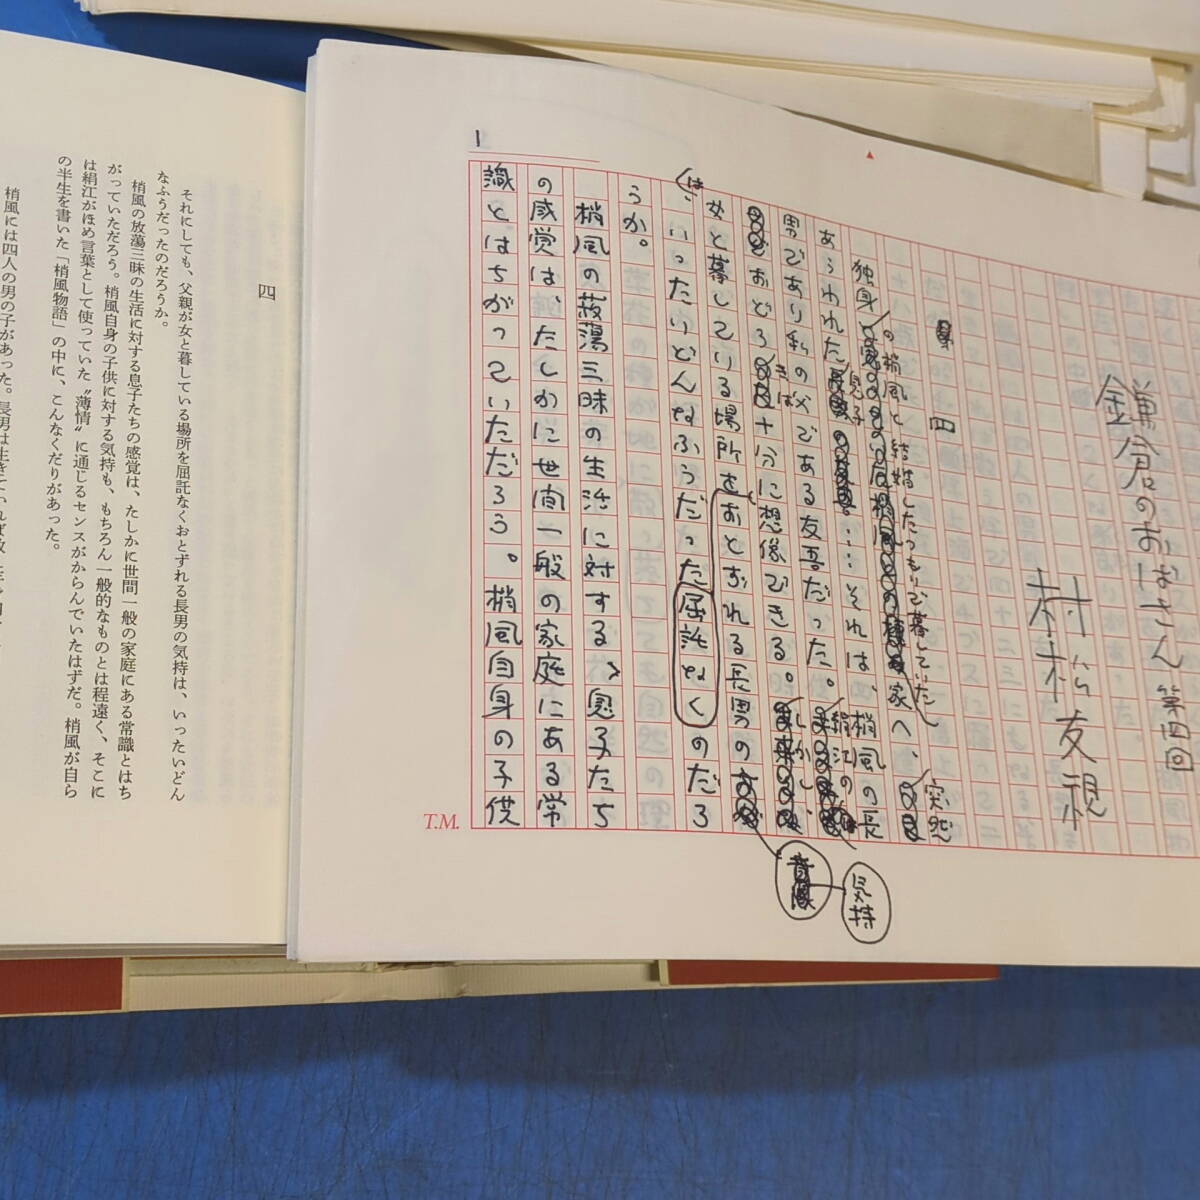 鎌倉のおばさん 第四回
村松友視
四
独身の梢風と結婚したつもりで暮していた
家へ、突然
あらわれた息子……それは、梢風の長
男であり私の父である友吾だった。絹江の
おどろきは十分に想像できる。しかし、
女と暮している場所をおとずれる長男の気持
は、いったいどんなふうだった屈託なくのだろ
うか。
梢風の放蕩三昧の生活に対する、息子たち
の感覚は、たしかに世間一般の家庭にある常
識とはちがっていただろう。梢風自身の子供
1
T.M.
四
それにしても、父親が女と暮している場所を屈託なくおとずれる長男の気持は、いったいどん
なふうだったのだろうか。
梢風の放蕩三昧の生活に対する息子たちの感覚は、たしかに世間一般の家庭にある常識とはち
がっていただろう。梢風自身の子供に対する気持も、もちろん一般的なものとは程遠く、そこに
は絹江がほめ言葉として使っていた〝薄情〟に通じるセンスがからんでいたはずだ。梢風が自ら
の半生を書いた「梢風物語」の中に、こんなくだりがあった。
梢風には四人の男の子があった。長男は生きていれば